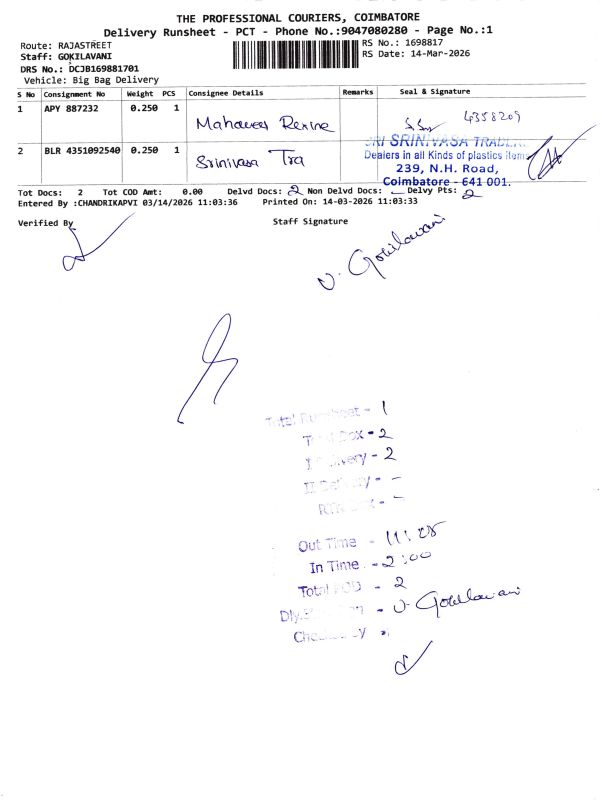 THE PROFESSIONAL COURIERS, COIMBATORE
Delivery Runsheet - PCT - Phone No.:9047080280 - Page No.:1
Route: RAJASTREET
RS No.: 1698817
Staff: GOKILAVANI
RS Date: 14-Mar-2026
DRS No.: DCJB169881701
Vehicle: Big Bag Delivery
S No Consignment No Weight PCS Consignee Details Remarks Seal & Signature
1 APY 887232 0.250 1 Mahaveer 4358209
2 BLR 4351092540 0.250 1 Srinivasa Tra
SRI SRINIVASA TRADERS
Dealers in all Kinds of plastics item
239, N.H. Road,
Coimbatore - 641 001.
Tot Docs: 2 Tot COD Amt: 0.00 Delvd Docs: 2 Non Delvd Docs: — Delvy Pts: 2
Entered By :CHANDRIKAPVI 03/14/2026 11:03:36 Printed On: 14-03-2026 11:03:33
Verified By Staff Signature
V. Gokilavani
Total Runsheet - 1
Total Box - 2
I Delivery - 2
II Delivery - -
RTN Box - -
Out Time - 11:05
In Time - 2:00
Total POD - 2
V. Gokilavani
Checked By